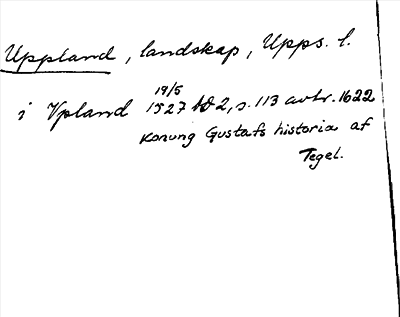 Uppland, landskap, Upps. l.
19/5
i Vpland 1527 bd 2, s. 113 avtr. 1622
Konung Gustafs historia af
Tegel.